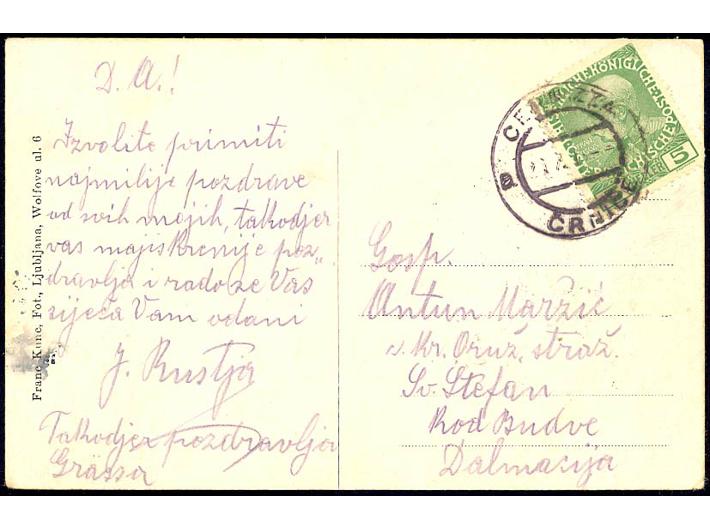 D. A.!
Izvolite primiti
najmilije pozdrave
od svih mojih, takodjer
vas najiskrenije poz„
dravlja i rado se Vas
sijeća Vam odani
J. Rustja
Takodjer pozdravlja
Grässa
Franc Kunc, Fot., Ljubljana, Wolfove ul. 6
ČRNIČE
a
5
Gosp.
Antun Maržić
Kr. Oruž. straž.
Sv. Štefan
Kod Budve
Dalmacija